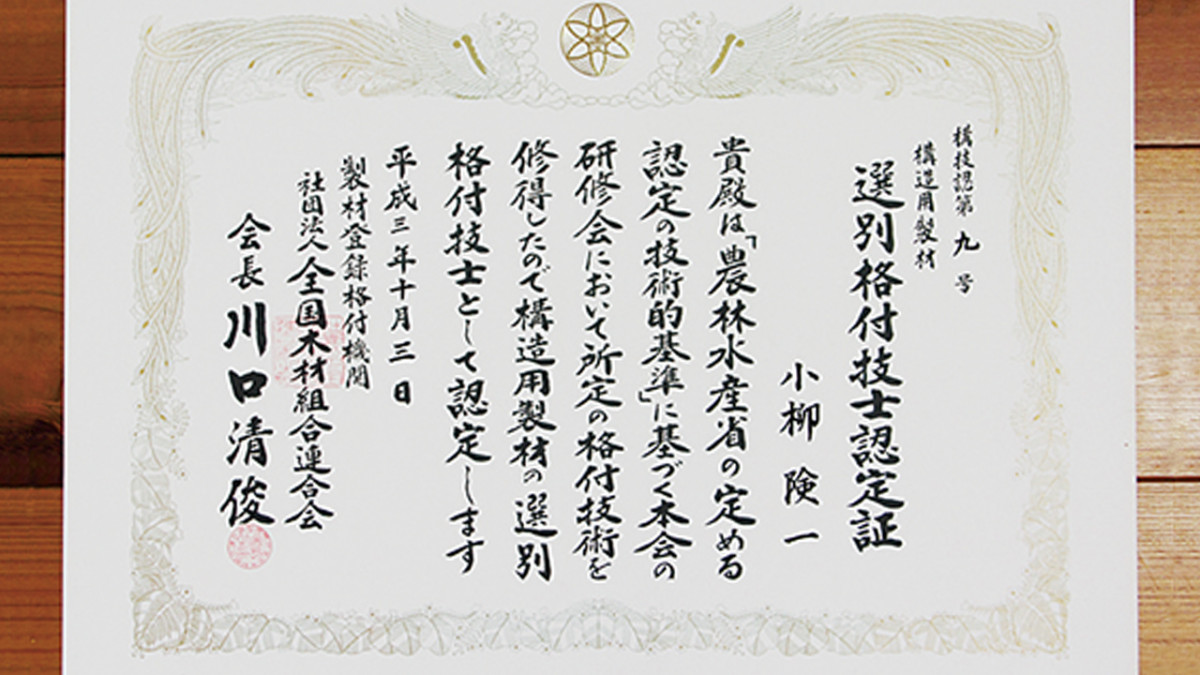 構技認第九号
構造用製材
選別格付技士認定証
小柳険一
貴殿は「農林水産省の定める
認定の技術的基準」に基づく本会の
研修会において所定の格付技術を
修得したので構造用製材の選別
格付技士として認定します
平成三年十月三日
製材登録格付機関
社団法人全国木材組合連合会
会長川口清俊